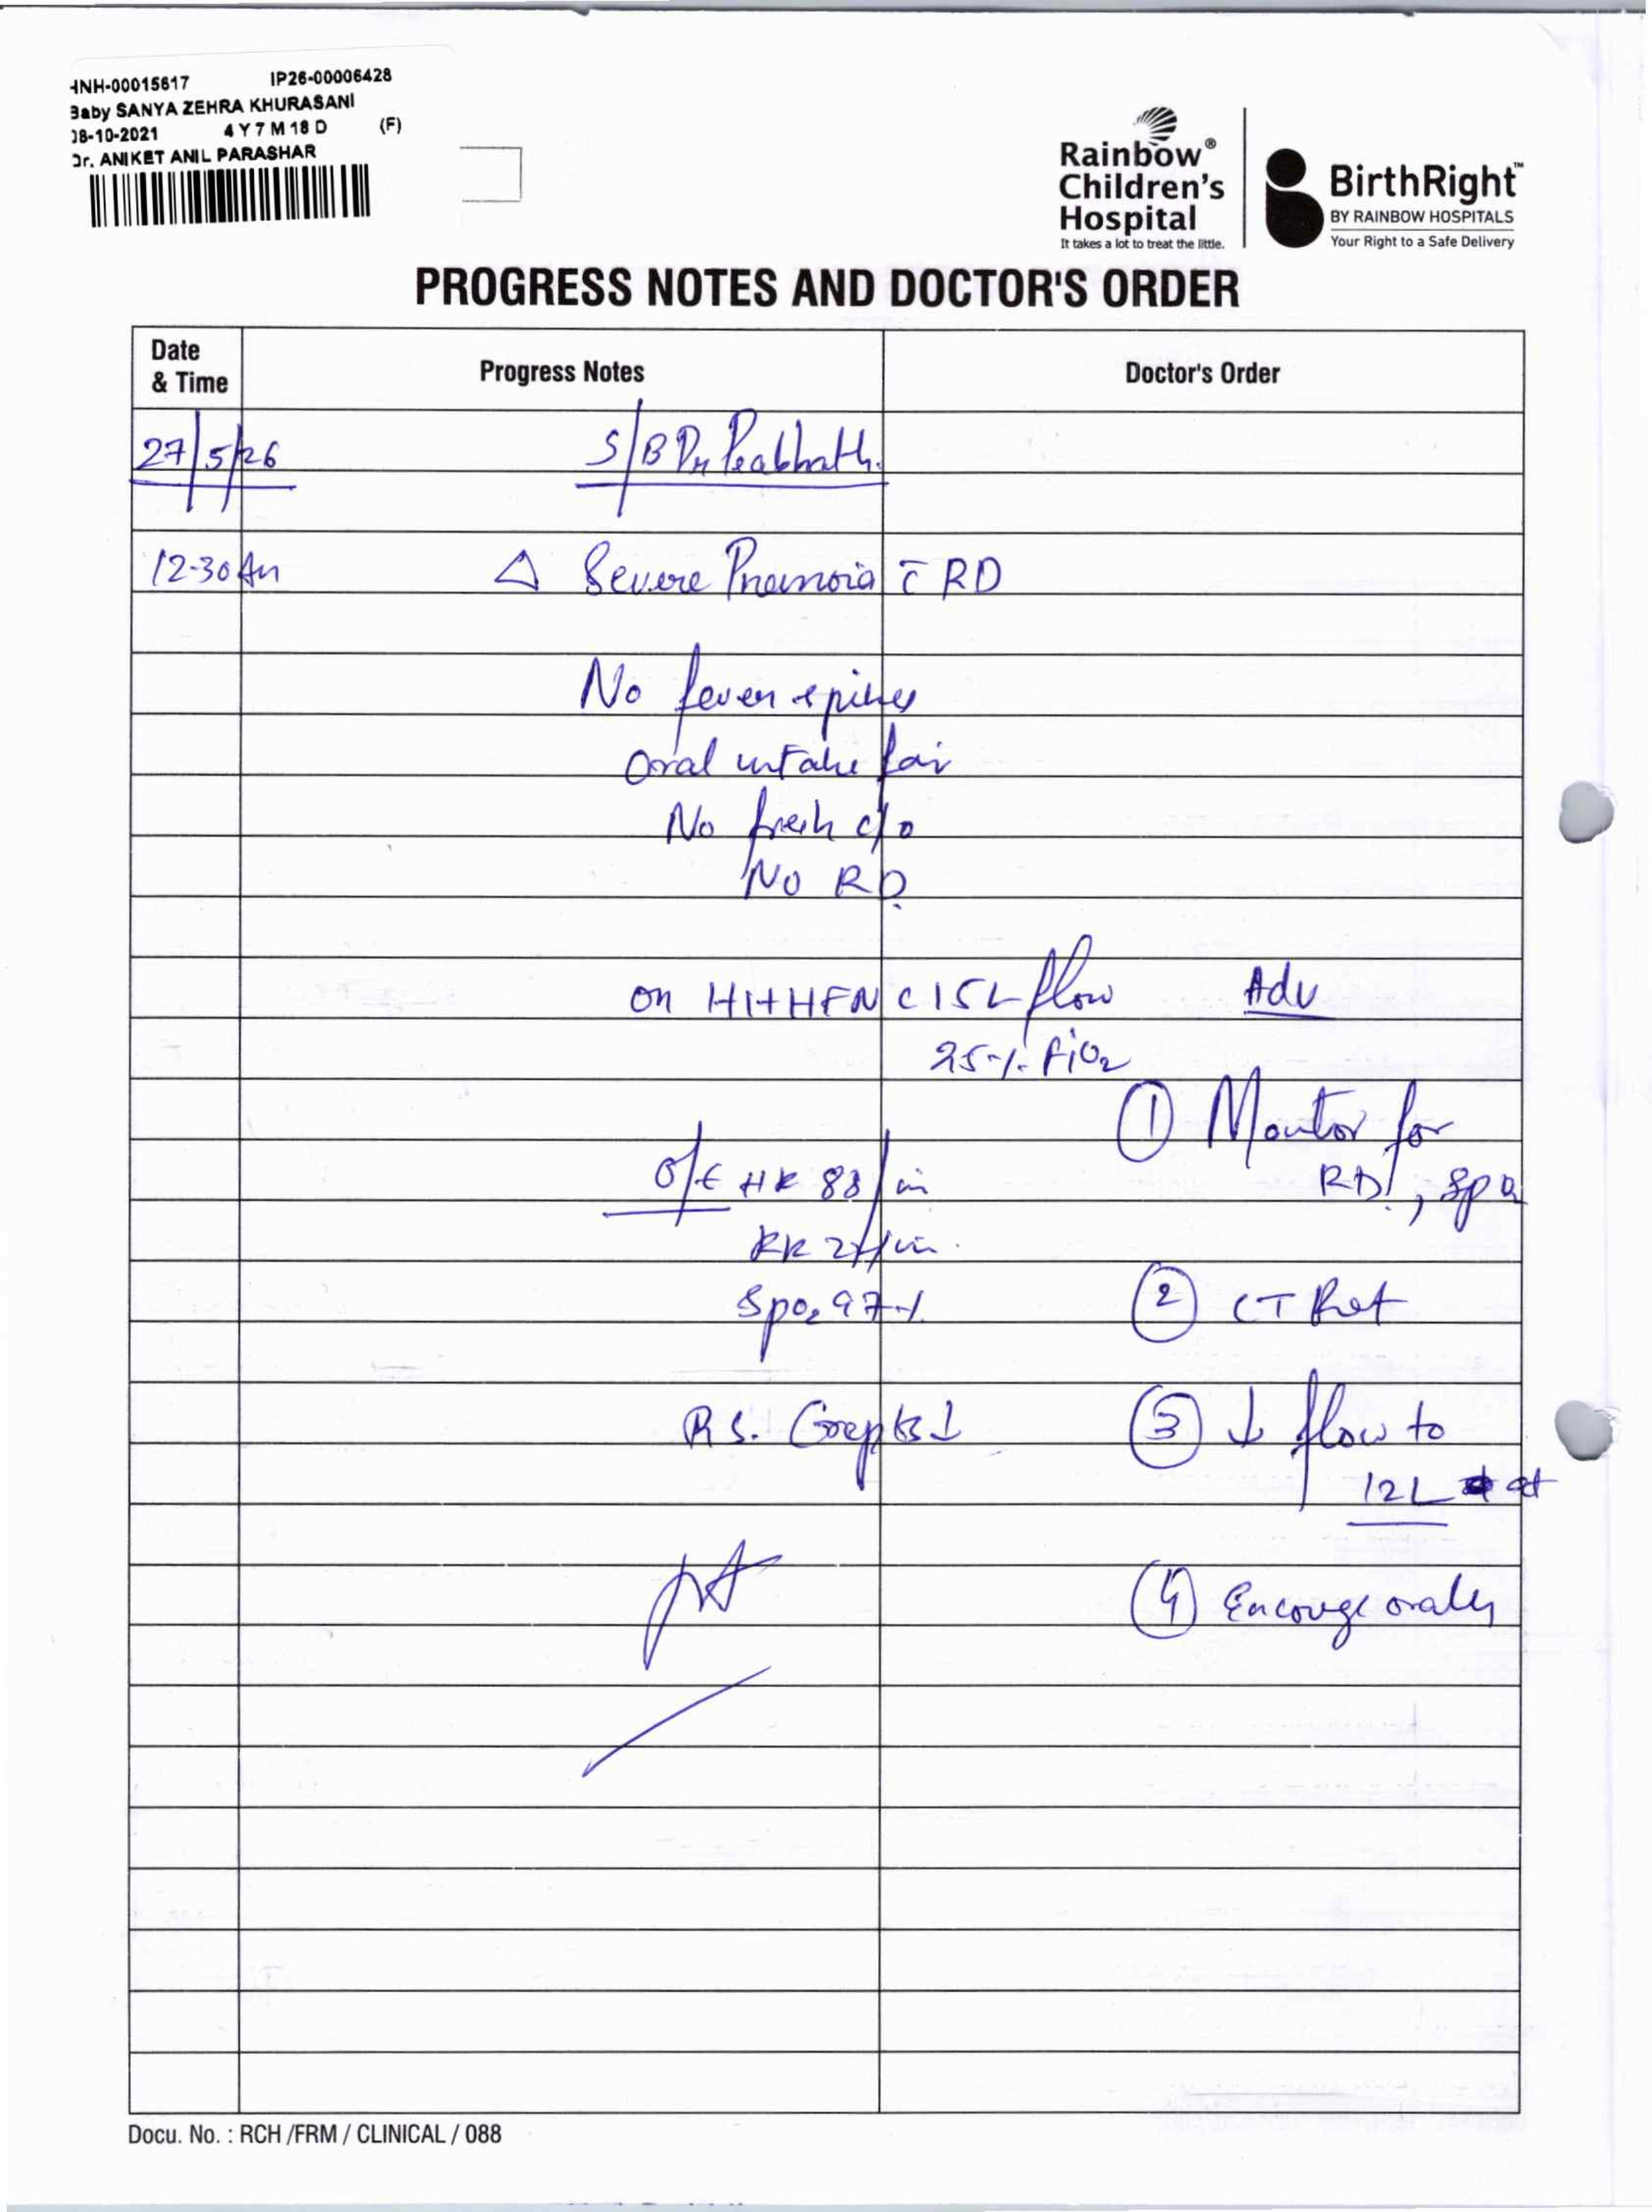 HNH-00015617 IP26-00006428
Baby SANYA ZEHRA KHURASANI
08-10-2021 4 Y 7 M 18 D (F)
Dr. ANIKET ANIL PARASHAR
Rainbow®
Children's
Hospital
It takes a lot to treat the little.
BirthRight™
BY RAINBOW HOSPITALS
Your Right to a Safe Delivery
PROGRESS NOTES AND DOCTOR'S ORDER
Date
& Time
Progress Notes
Doctor's Order
27/5/26 S/B Dr
12-30 Am △ Severe Pneumoia c̄ RD
No fever spikes
Oral intake fair
No fresh c/o
No RD
on HHHFNC 15L flow
25% FiO2
O/E HR 88/min
RR /min
SpO2 97%
RS. Crepts ↓
Adv
① Monitor for
RD,
② CT
③ ↓ flow to
12L at
④ Encouge orally
Docu. No. : RCH /FRM / CLINICAL / 088